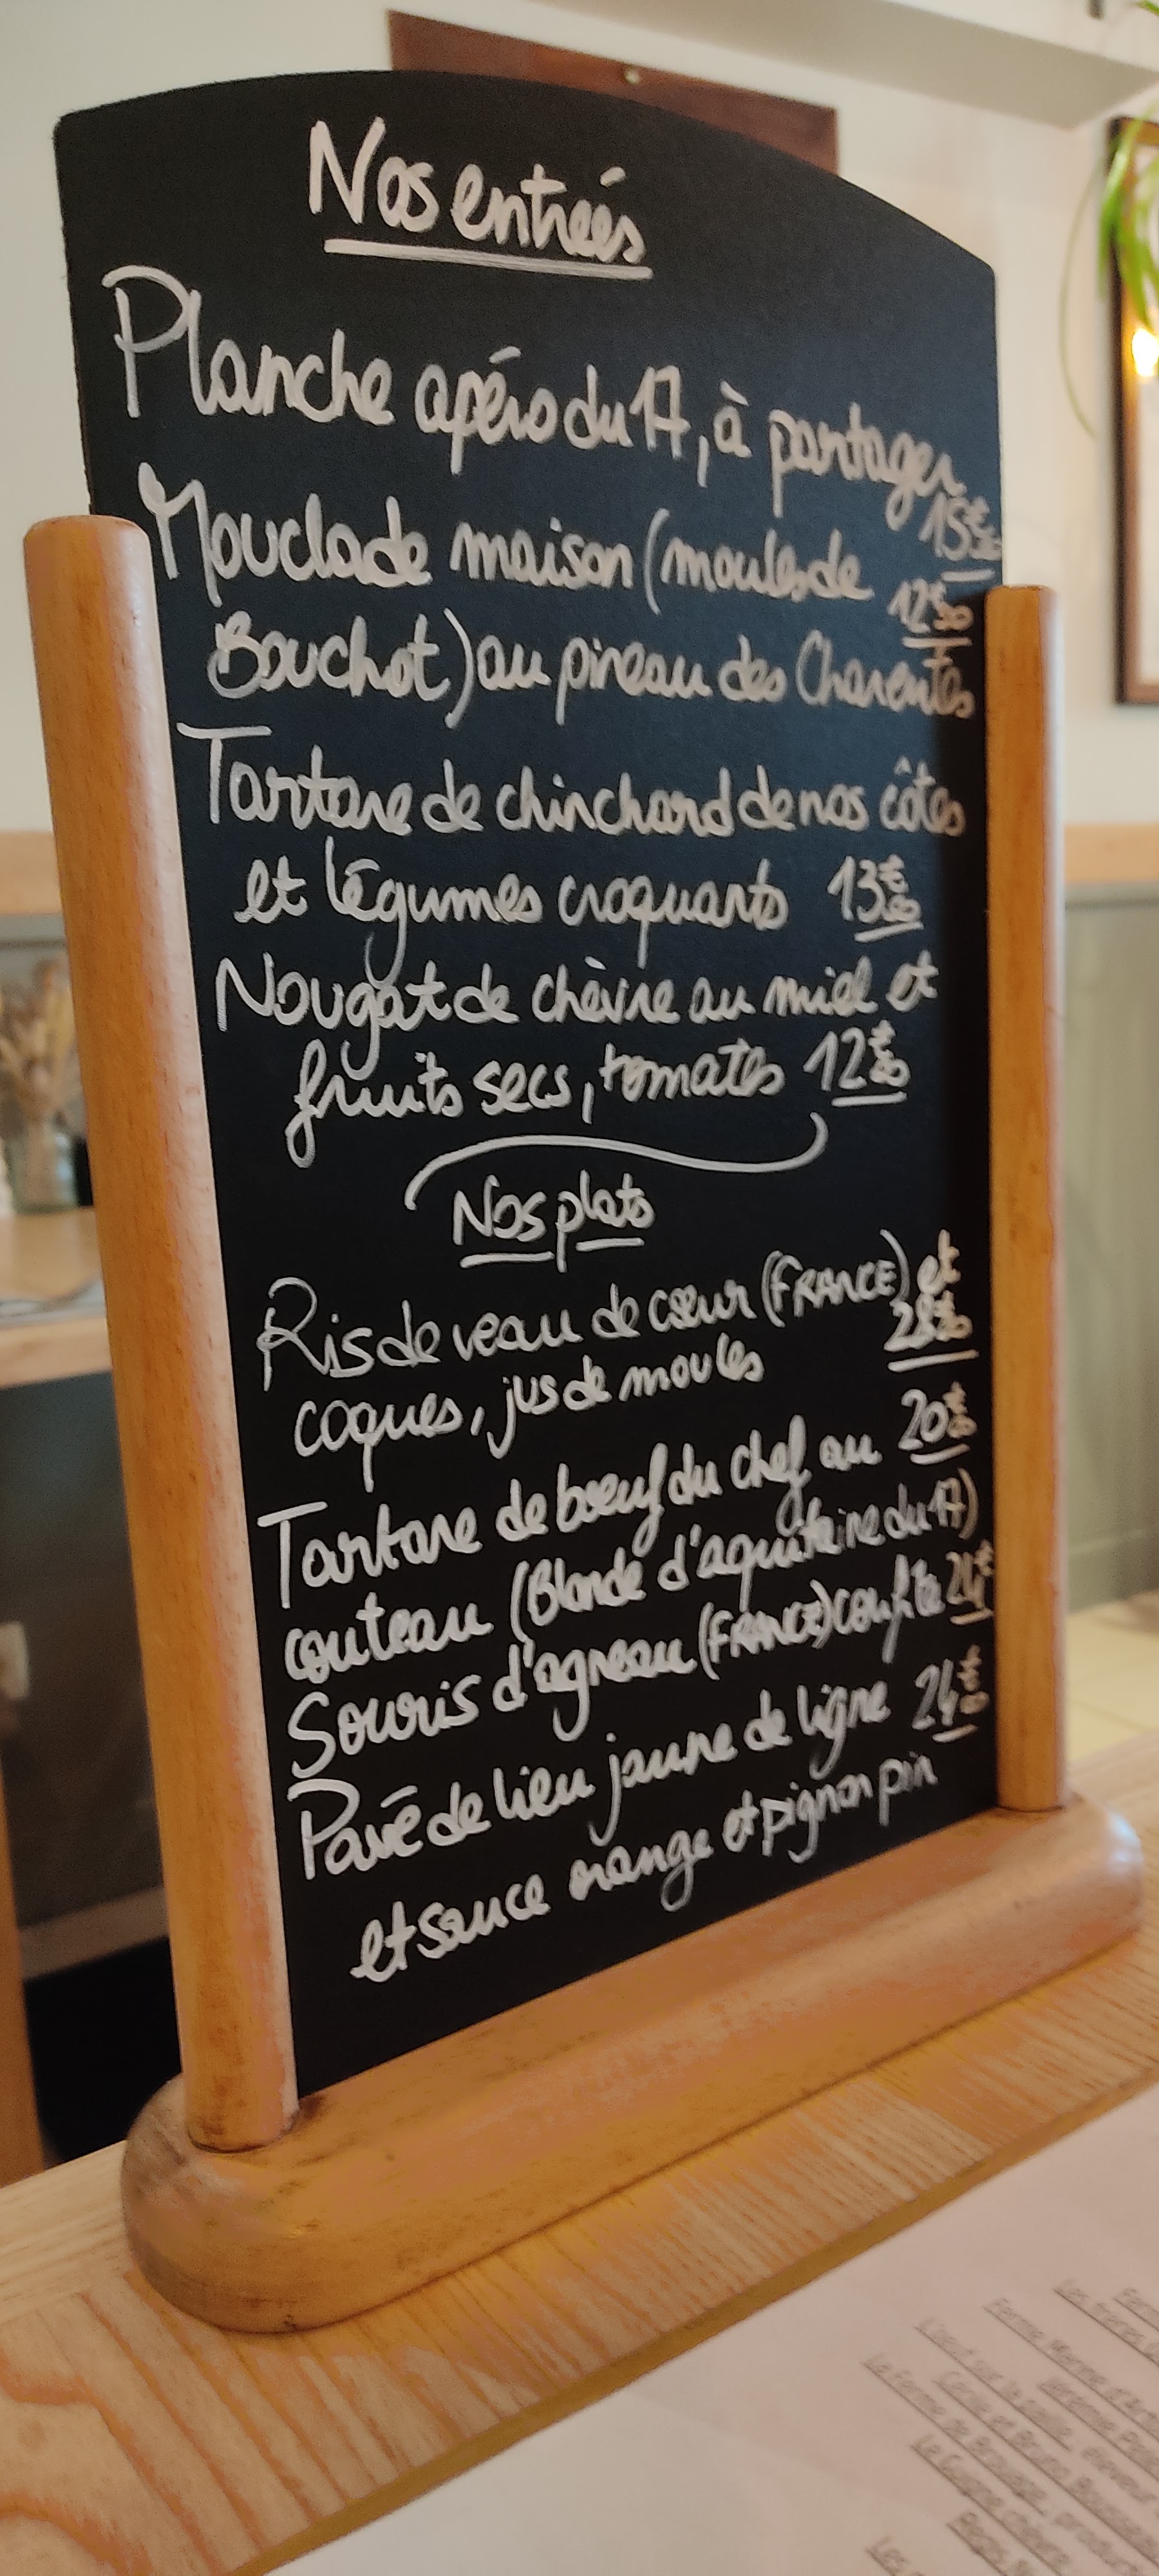 Nos entrées
Planche apéro du 17, à partager
15€
Mouclade maison (moules de
12€50
Bouchot) au pineau des Charentes
Tartare de chinchard de nos côtes
et légumes croquants 13€
Nougat de chèvre au miel et
fruits secs, tomates 12€
Nos plats
Ris de veau de cœur (FRANCE) et
coques, jus de moules 28€
Tartare de bœuf du chef au 20€
couteau (Blonde d'aquitaine du 17)
Souris d'agneau (FRANCE) confite 24€
Pavé de lieu jaune de ligne 24€
et sauce orange et pignon pin